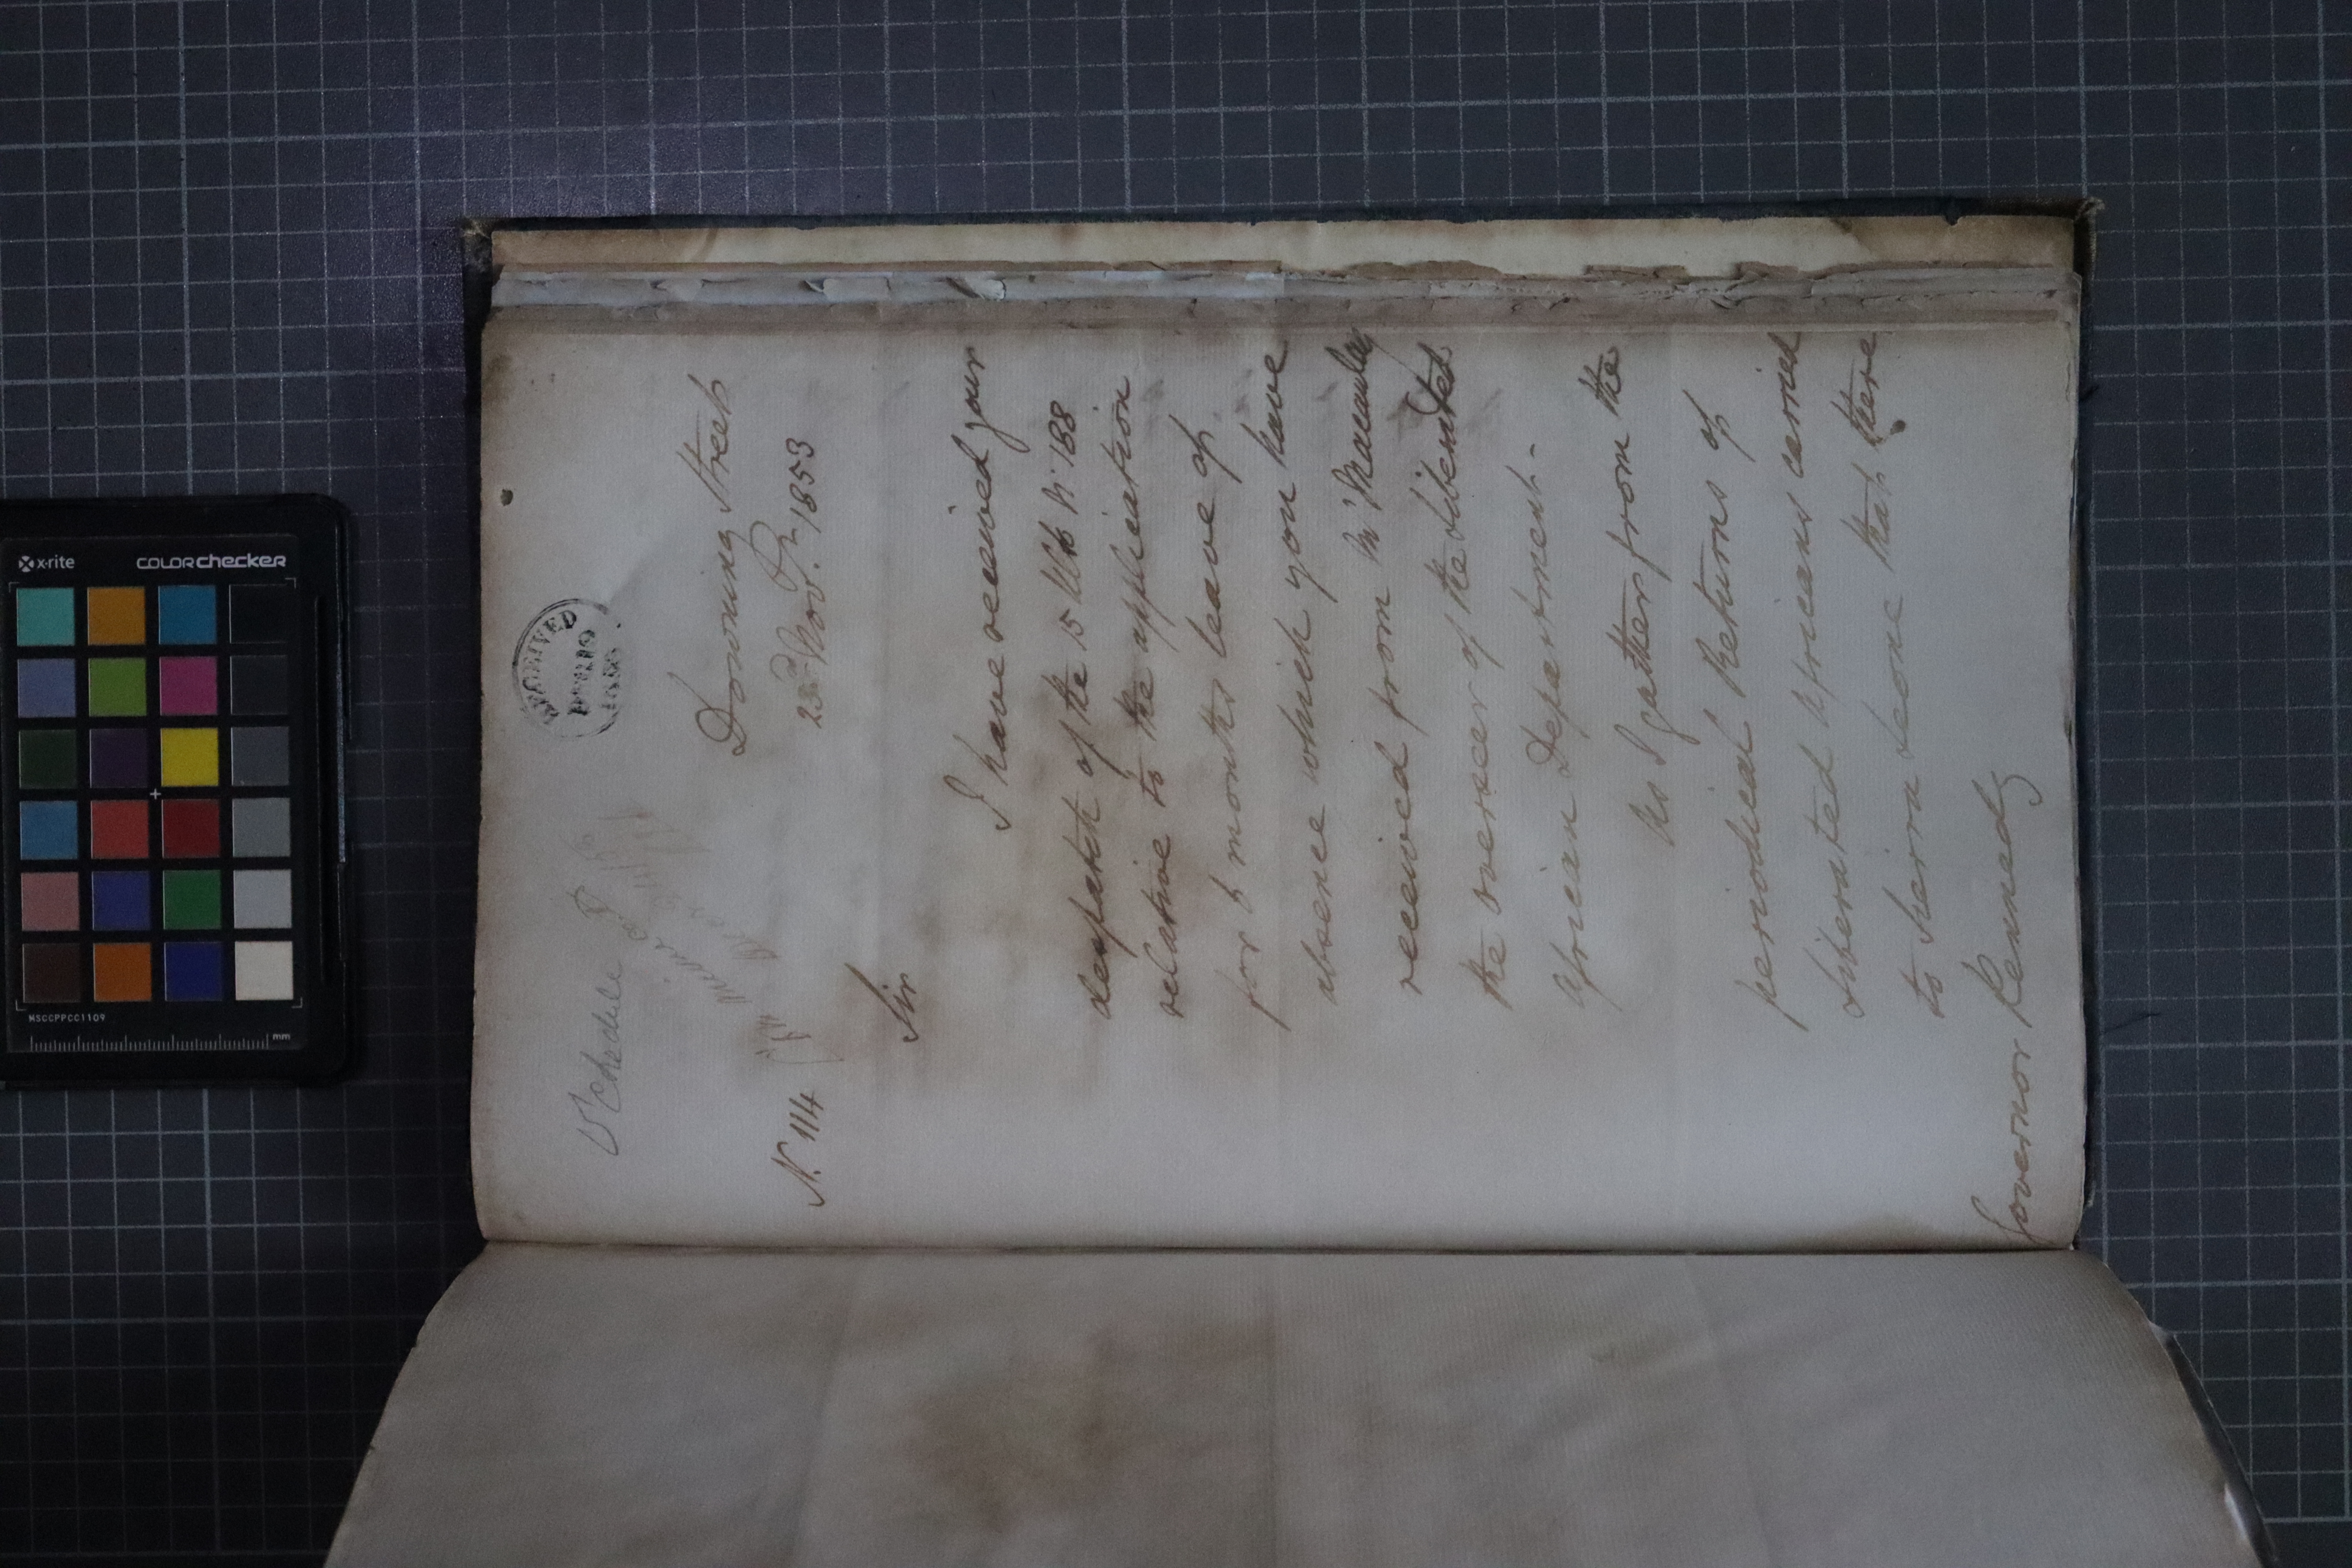 RECEIVED
Downing Street
23d Novr. 1853
N. 114
Sir
I have received your
despatch of the 15 Ulto No 188
relative to the application
for 6 months leave of
absence which you have
received from Mr Macaulay
the overseer of the Liberated
African Department -
As I gather from the
periodical Returns of
Liberated Africans carried
to Sierra Leone that there
Governor Kennedy
x-rite colorchecker
MSCCPPCC1109
mm